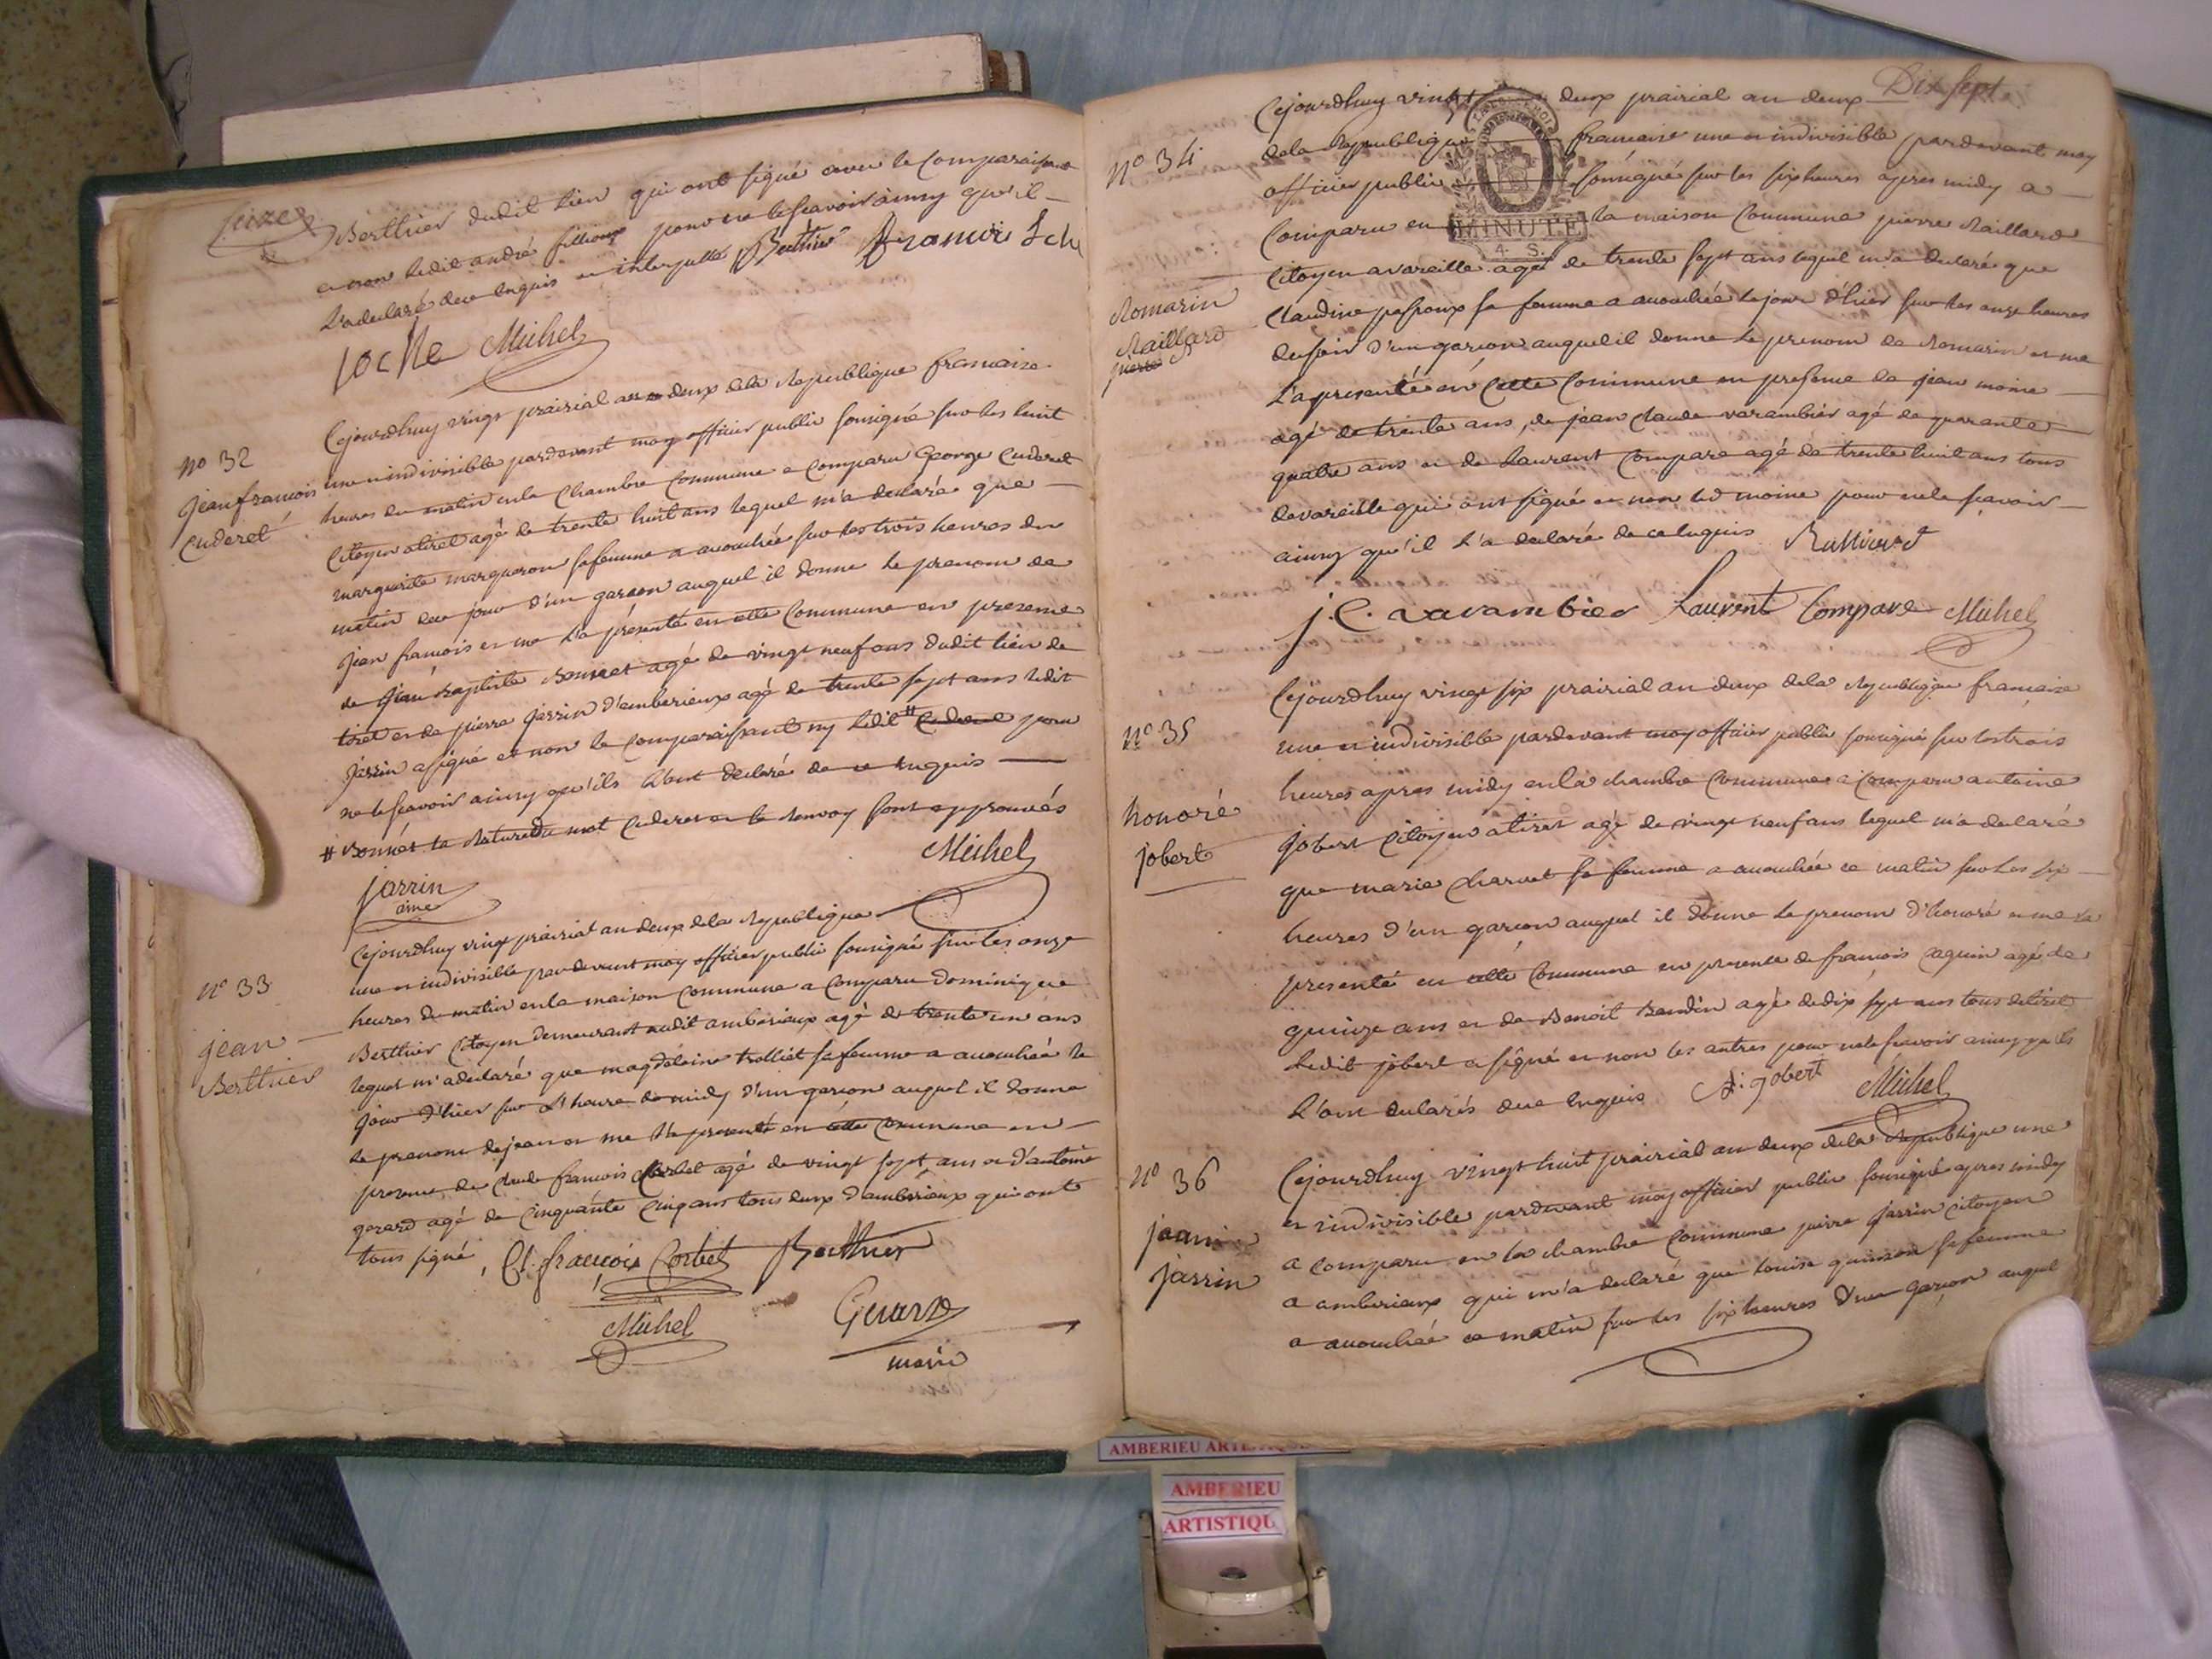 Seize
Berthier dudit lieu qui ont signé avec le Comparaissant
et non ledit andré fillioux pour ne le scavoir ainsy qu'il
L'a declaré de ce enquis et interpellé Berthier
Michel
N° 32
Jean francois
Cuderet
Cejourdhuy vingt prairial an deux dela Republique francaise
une et indivisible pardevant moy officier public soussigné sur les huit
heures du matin en la Chambre Commune a Comparu George Cuderet
Citoyen atiret agé de trente huit ans lequel m'a declaré que
marguerite margueron sa femme a accouchée sur les trois heures du
matin de ce jour d'un garcon auquel il donne le prenom de
Jean francois et me l'a présenté en cette Commune en presence
de Jean Baptiste Bonnet agé de vingt neuf ans dudit lieu de
tiret et de pierre Jarrin d'amberieux agé de trente sept ans ledit
Jarrin a signé et non le Comparaissant ny ledit # Cuderet pour
ne le scavoir ainsy qu'ils L'ont declaré de ce enquis
# Bonnet la Rature du mot Cuderet et le Renvoy sont approuvés
Jarrin
ainé
Michel
N° 33
Jean
Berthier
Cejourdhuy vingt prairial an deux dela Republique
une et indivisible pardevant moy officier public soussigné sur les onze
heures du matin en la maison Commune a Comparu Dominique
Berthier Citoyen demeurant audit amberieux agé de trente un ans
lequel m'a declaré que magdeleine trolliet sa femme a accouchée le
jour d'hier sur L'heure de midy d'un garcon auquel il donne
le prenom de jean et me l'a presenté en cette Commune en
presence de Claude francois Corbet agé de vingt sept ans et d'antoine
gerard agé de Cinquante Cinq ans tous deux d'amberieux qui ont
tous signé Cl. françois Corbet Berthier
Michel
Gerard
maire
Dix sept
N° 34
Romarin
Raillard
pierre
Cejourdhuy vingt deux prairial an deux
dela Republique francaise une et indivisible pardevant moy
officier public soussigné sur les six heures apres midy a
Comparu en la maison Commune pierre Raillard
MINUTE
4. S.
Citoyen avareille agé de trente sept ans lequel m'a declaré que
Claudine sa femme a accouchée le jour d'hier sur les onze heures
du soir d'un garcon auquel il donne le prenom de Romarin et me
L'a presenté en Cette Commune en presence de jean moine
agé de trente ans, de jean Claude varambier agé de quarante
quatre ans et de Laurent Compare agé de trente huit ans tous
de vareille qui ont signé et non led moine pour ne le scavoir
ainsy qu'il L'a declaré de ce enquis
J. C. varambier Laurent Compare Michel
N° 35
honoré
jobert
Cejourdhuy vingt six prairial an deux dela Republique francaise
une et indivisible pardevant moy officier public soussigné sur les trois
heures apres midy en la chambre Commune a Comparu antoine
Jobert Citoyen atiret agé de vingt neuf ans lequel m'a declaré
que marie Charvet sa femme a accouchée ce matin sur les six
heures d'un garcon auquel il donne le prenom d'honoré et me l'a
presenté en cette Commune en presence de francois agé de
quinze ans et de Benoit agé de dix sept ans tous de tiret
ledit jobert a signé et non les autres pour ne le scavoir ainsy qu'ils
L'ont declarés de ce enquis A: jobert Michel
N° 36
jean
jarrin
Cejourdhuy vingt huit prairial an deux dela Republique une
et indivisible pardevant moy officier public soussigné apres midy
a comparu en la chambre Commune pierre Jarrin Citoyen
a amberieux qui m'a declaré que Louise quinson sa femme
a accouchée ce matin sur les six heures d'un garcon auquel
AMBERIEU
AMBERIEU
ARTISTIQU